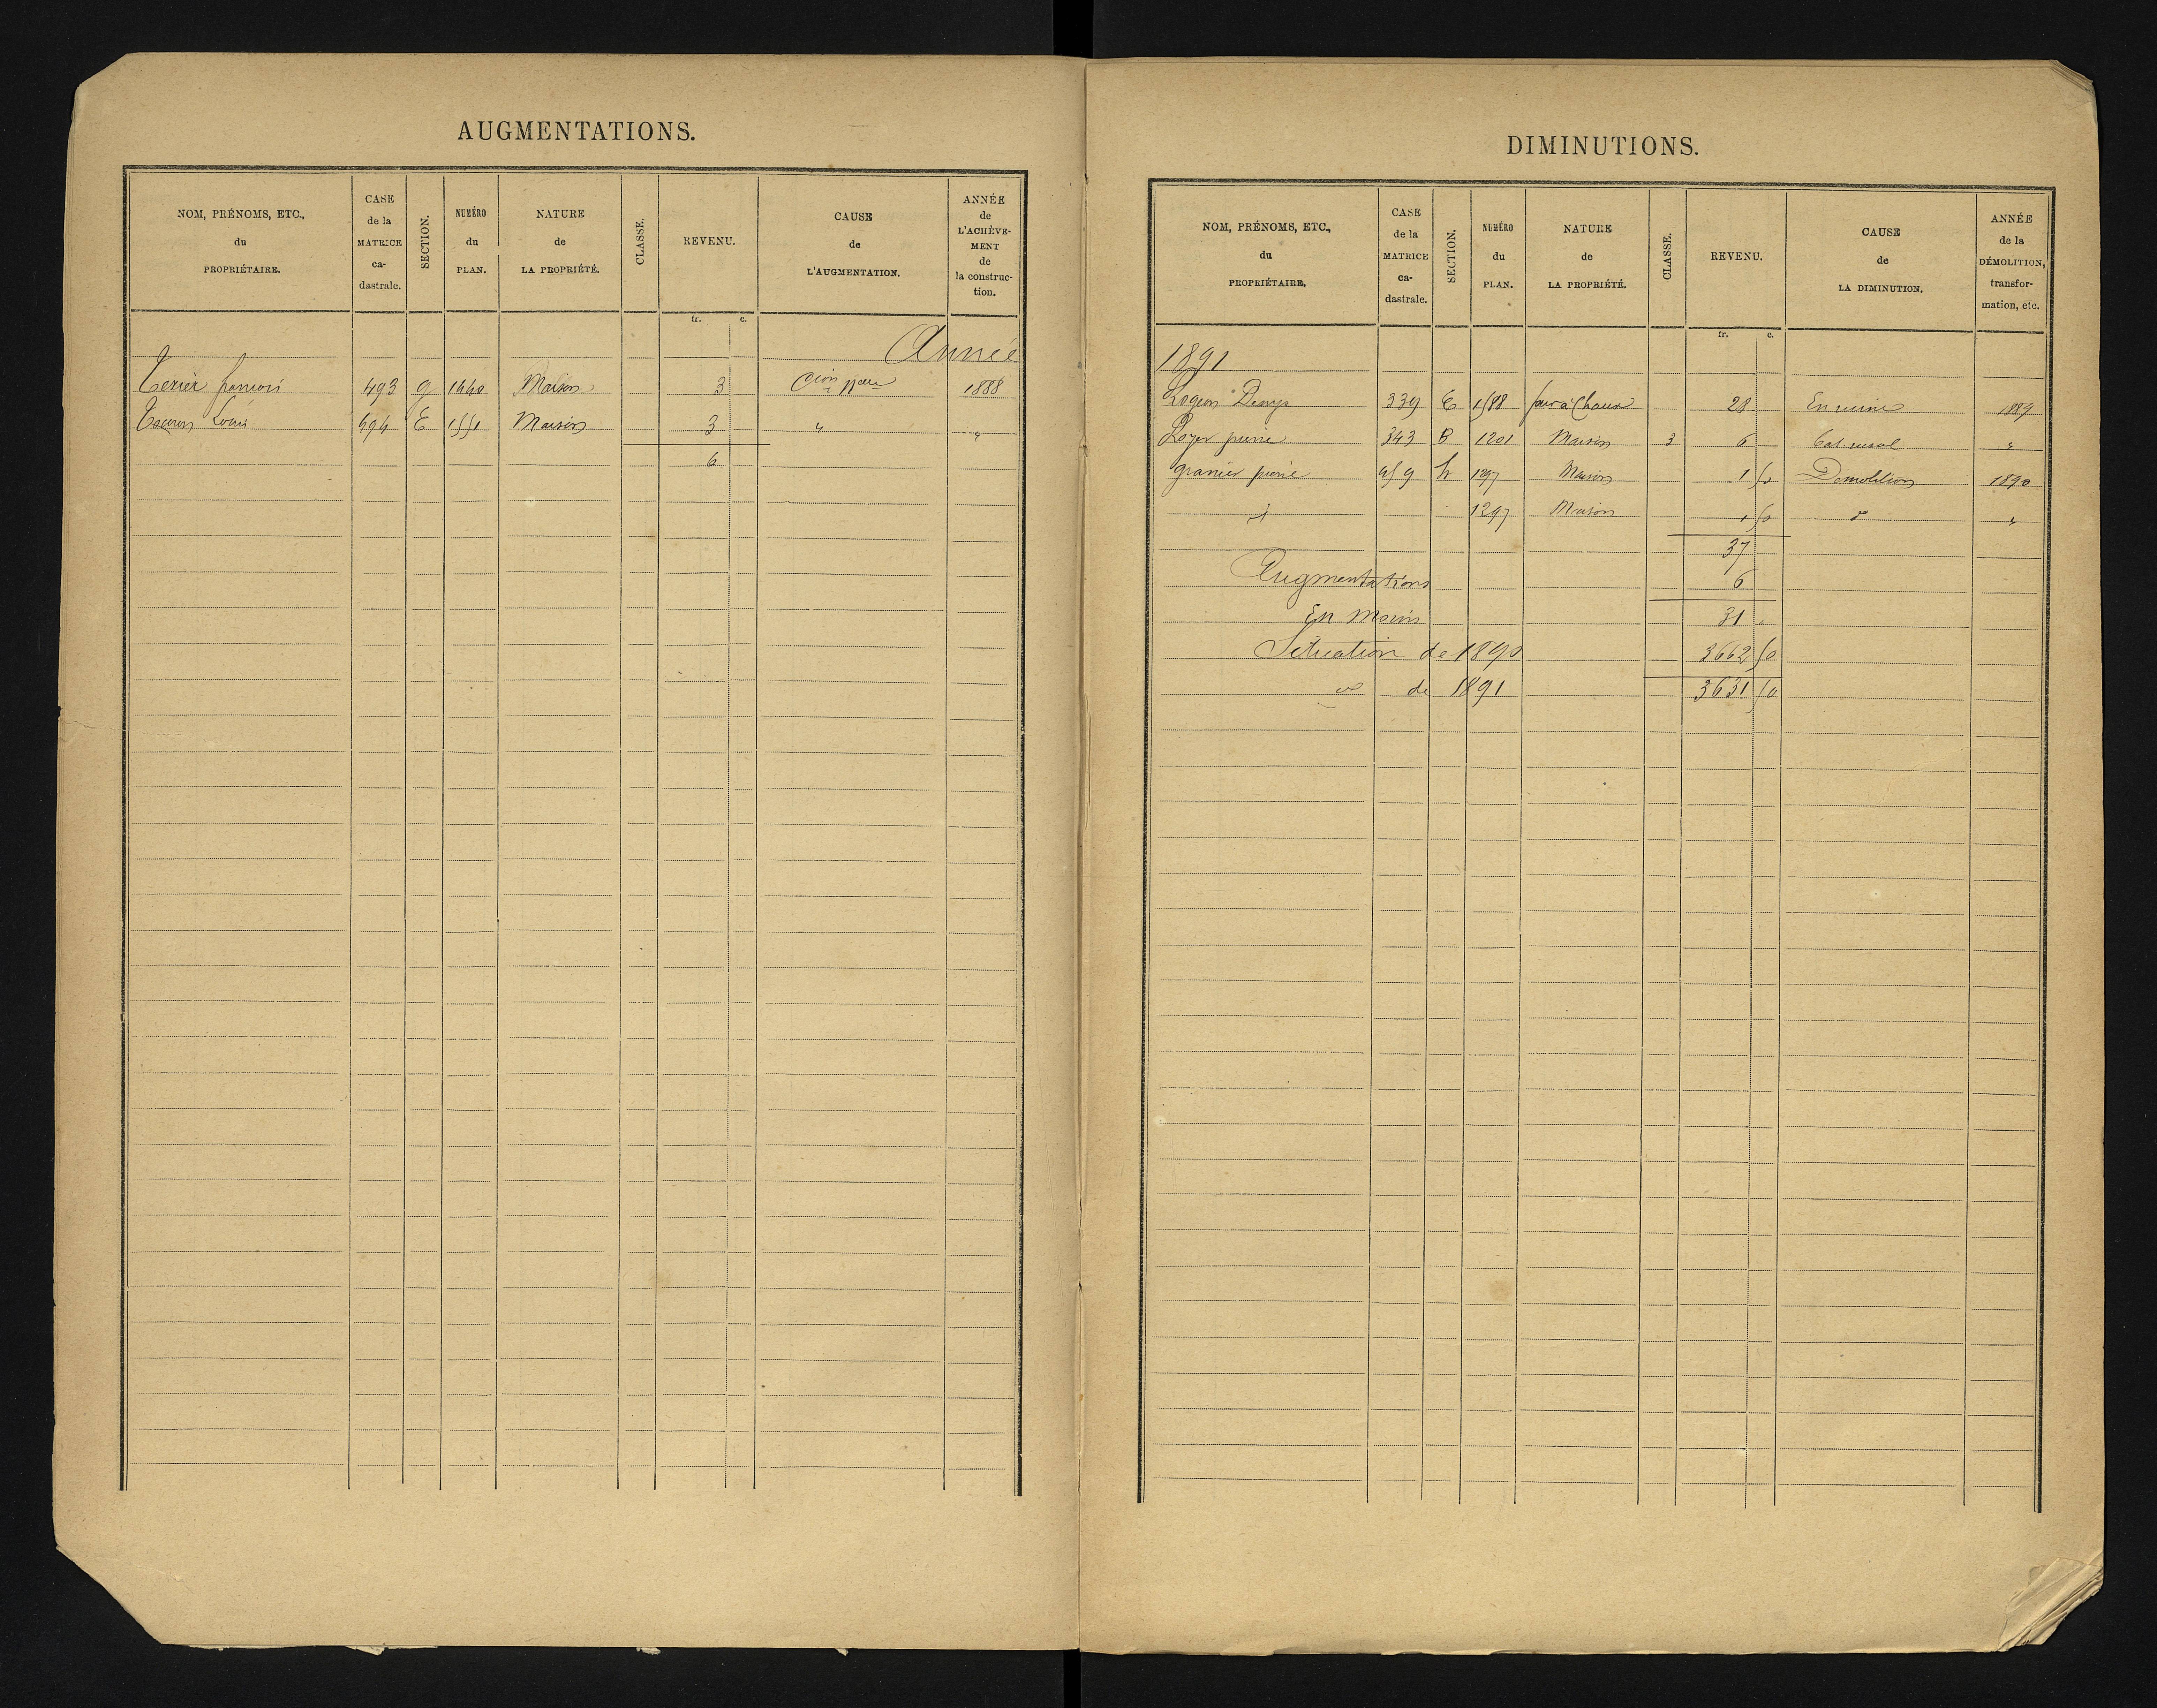 AUGMENTATIONS.
NOM, PRÉNOMS, ETC., du PROPRIÉTAIRE.
CASE de la MATRICE ca-dastrale.
SECTION.
NUMÉRO du PLAN.
NATURE de LA PROPRIÉTÉ.
CLASSE.
REVENU.
CAUSE de L'AUGMENTATION.
ANNÉE de L'ACHÈVE-MENT de la construc-tion.
fr. c.
Année
françois 493 g 1440 Maison 3 Cion nelle 1888
Louis 494 E 1551 Maison 3 " "
6
DIMINUTIONS.
NOM, PRÉNOMS, ETC., du PROPRIÉTAIRE.
CASE de la MATRICE ca-dastrale.
SECTION.
NUMÉRO du PLAN.
NATURE de LA PROPRIÉTÉ.
CLASSE.
REVENU.
CAUSE de LA DIMINUTION.
ANNÉE de la DÉMOLITION, transfor-mation, etc.
fr. c.
1891
Logeon Denys 339 E 1588 four à Chaux 28 En ruine 1889
Loyer pierre 343 B 1201 Maison 3 6 Bat. rural "
granier pierre 459 h 1297 Maison 1 50 Démolition 1890
1297 Maison 1 50 "
37
Augmentations 6
En Moins 31
Situation de 1890 3662 50
de 1891 3631 50